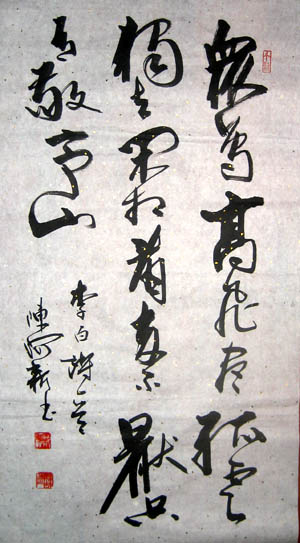 眾鳥高飛盡孤雲
獨去閑相看兩不厭只
有敬亭山
李白詩一首
陳